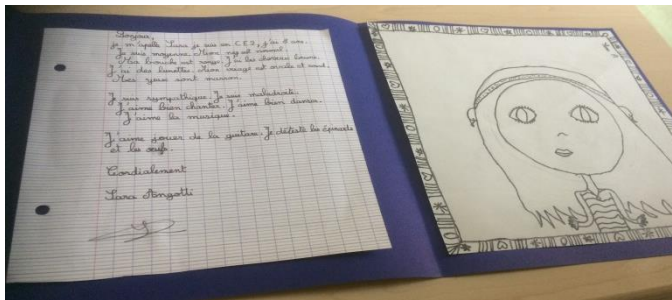 Bonjour,
je m'apelle Sara je suis en CE2, j'ai 8 ans.
Je suis moyenne. Mon nez est normal.
Ma bouche est rouge. J'ai les cheveux bruns.
J'ai des lunettes. Mon visage est ovale et rond.
Mes yeux sont marron.
Je suis sympathique. Je suis maladroite.
J'aime bien chanter. J'aime bien danser.
J'aime la musique.
J'aime jouer de la guitare. Je déteste les épinards
et les œufs.
Cordialement
Sara Angotti